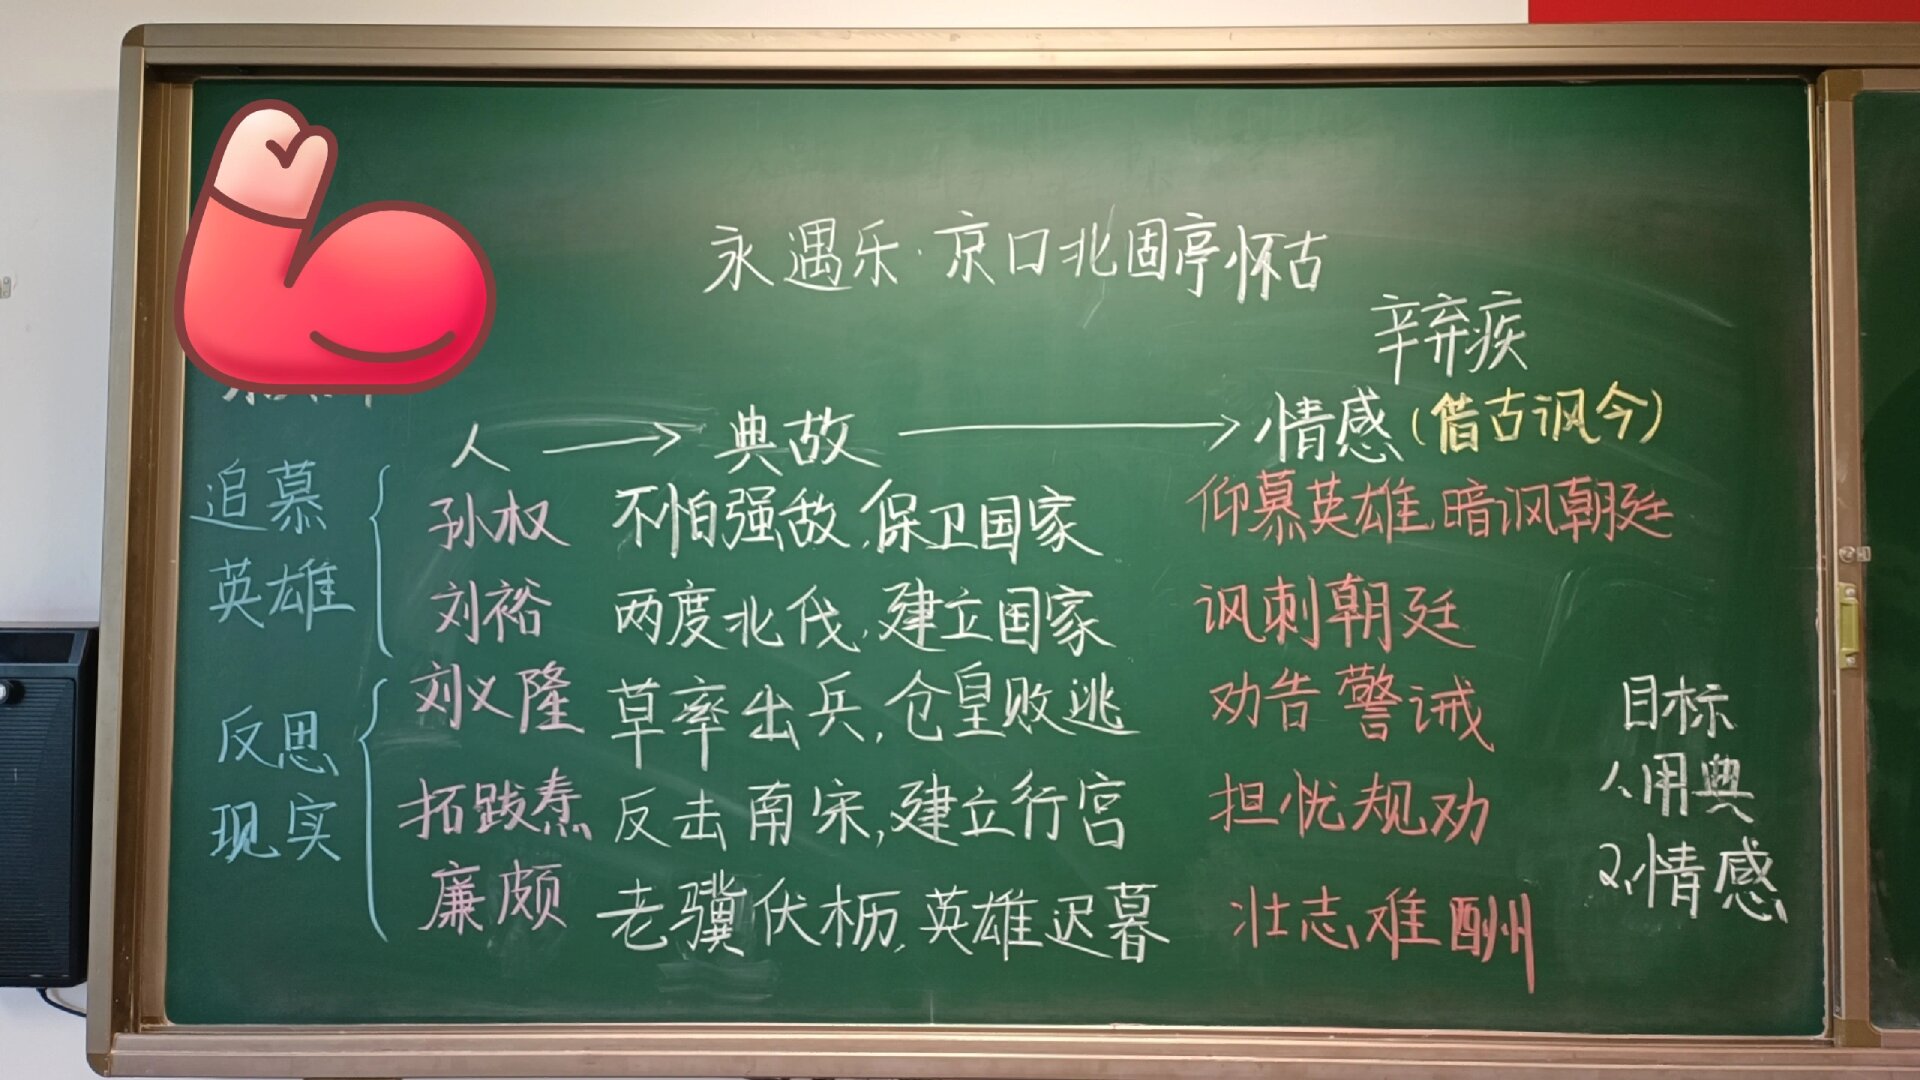 永遇乐·京口北固亭怀古
辛弃疾
人 → 典故 → 情感(借古讽今)
追慕英雄
孙权 不怕强敌,保卫国家 仰慕英雄,暗讽朝廷
刘裕 两度北伐,建立国家 讽刺朝廷
反思现实
刘义隆 草率出兵,仓皇败逃 劝告警诫
拓跋焘 反击南宋,建立行宫 担忧规劝
廉颇 老骥伏枥,英雄迟暮 壮志难酬
目标
1、用典
2、情感